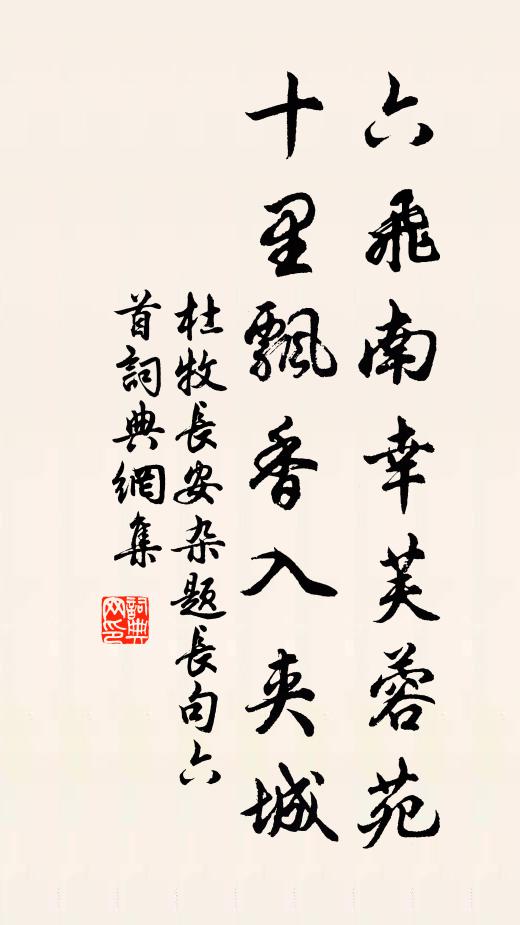 六飛南幸芙蓉苑
十里飄香入夾城
杜牧長安杂题長句六
首詞典網集
詞典网印